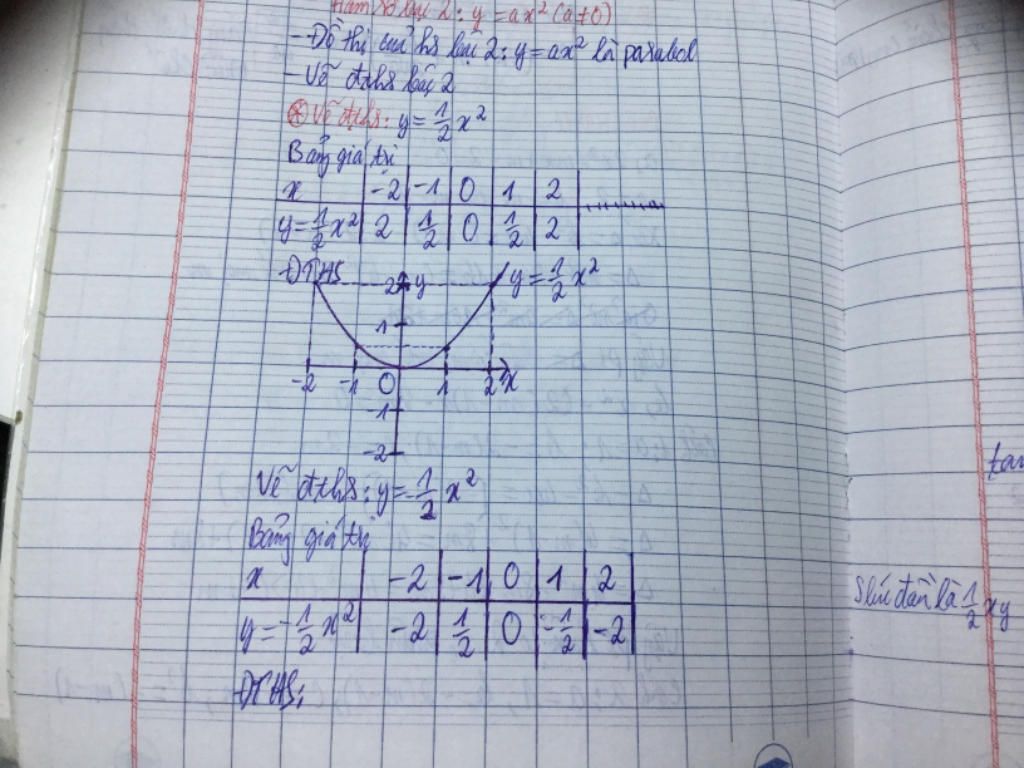 Hàm số bậc 2: y = ax² (a≠0)
- Đồ thị của hs bậc 2: y = ax² là parabol
- Vẽ đths bậc 2
* Vẽ đths: y = 1/2 x²
Bảng giá trị
x -2 -1 0 1 2
y = 1/2 x² 2 1/2 0 1/2 2
ĐTHS 2 y y = 1/2 x²
1
-2 -1 0 1 2 x
-1
-2
Vẽ đths: y = -1/2 x²
Bảng giá trị
x -2 -1 0 1 2
y = -1/2 x² -2 1/2 0 -1/2 -2
ĐTHS:
tan
là 1/2 xy